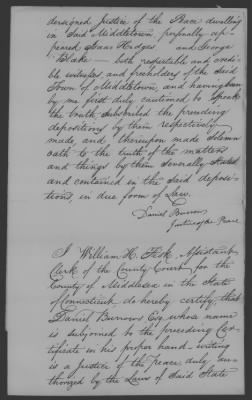 dersigned Justice of the Peace dwelling
in said Middletown, personally ap-
peared Isaac Hedges and George
Blake — both respectable and credi-
ble witnesses and freeholders of the said
Town of Middletown, and having been
by me first duly cautioned to speak
the truth, subscribed the preceding
depositions by them respectively
made, and thereupon made Solemn
oath to the truth of the matters
and things by them severally stated
and contained in the said deposi-
tions in due form of Law.
Daniel Burrows
Justice of the Peace
I William H. Fisk, Assistant
Clerk of the County Court for the
County of Middlesex in the State
of Connecticut do hereby certify, that
Daniel Burrows Esq. whose name
is subjoined to the preceding Cer-
tificate in his proper hand writing
is a justice of the peace duly au-
thorized by the Laws of said State